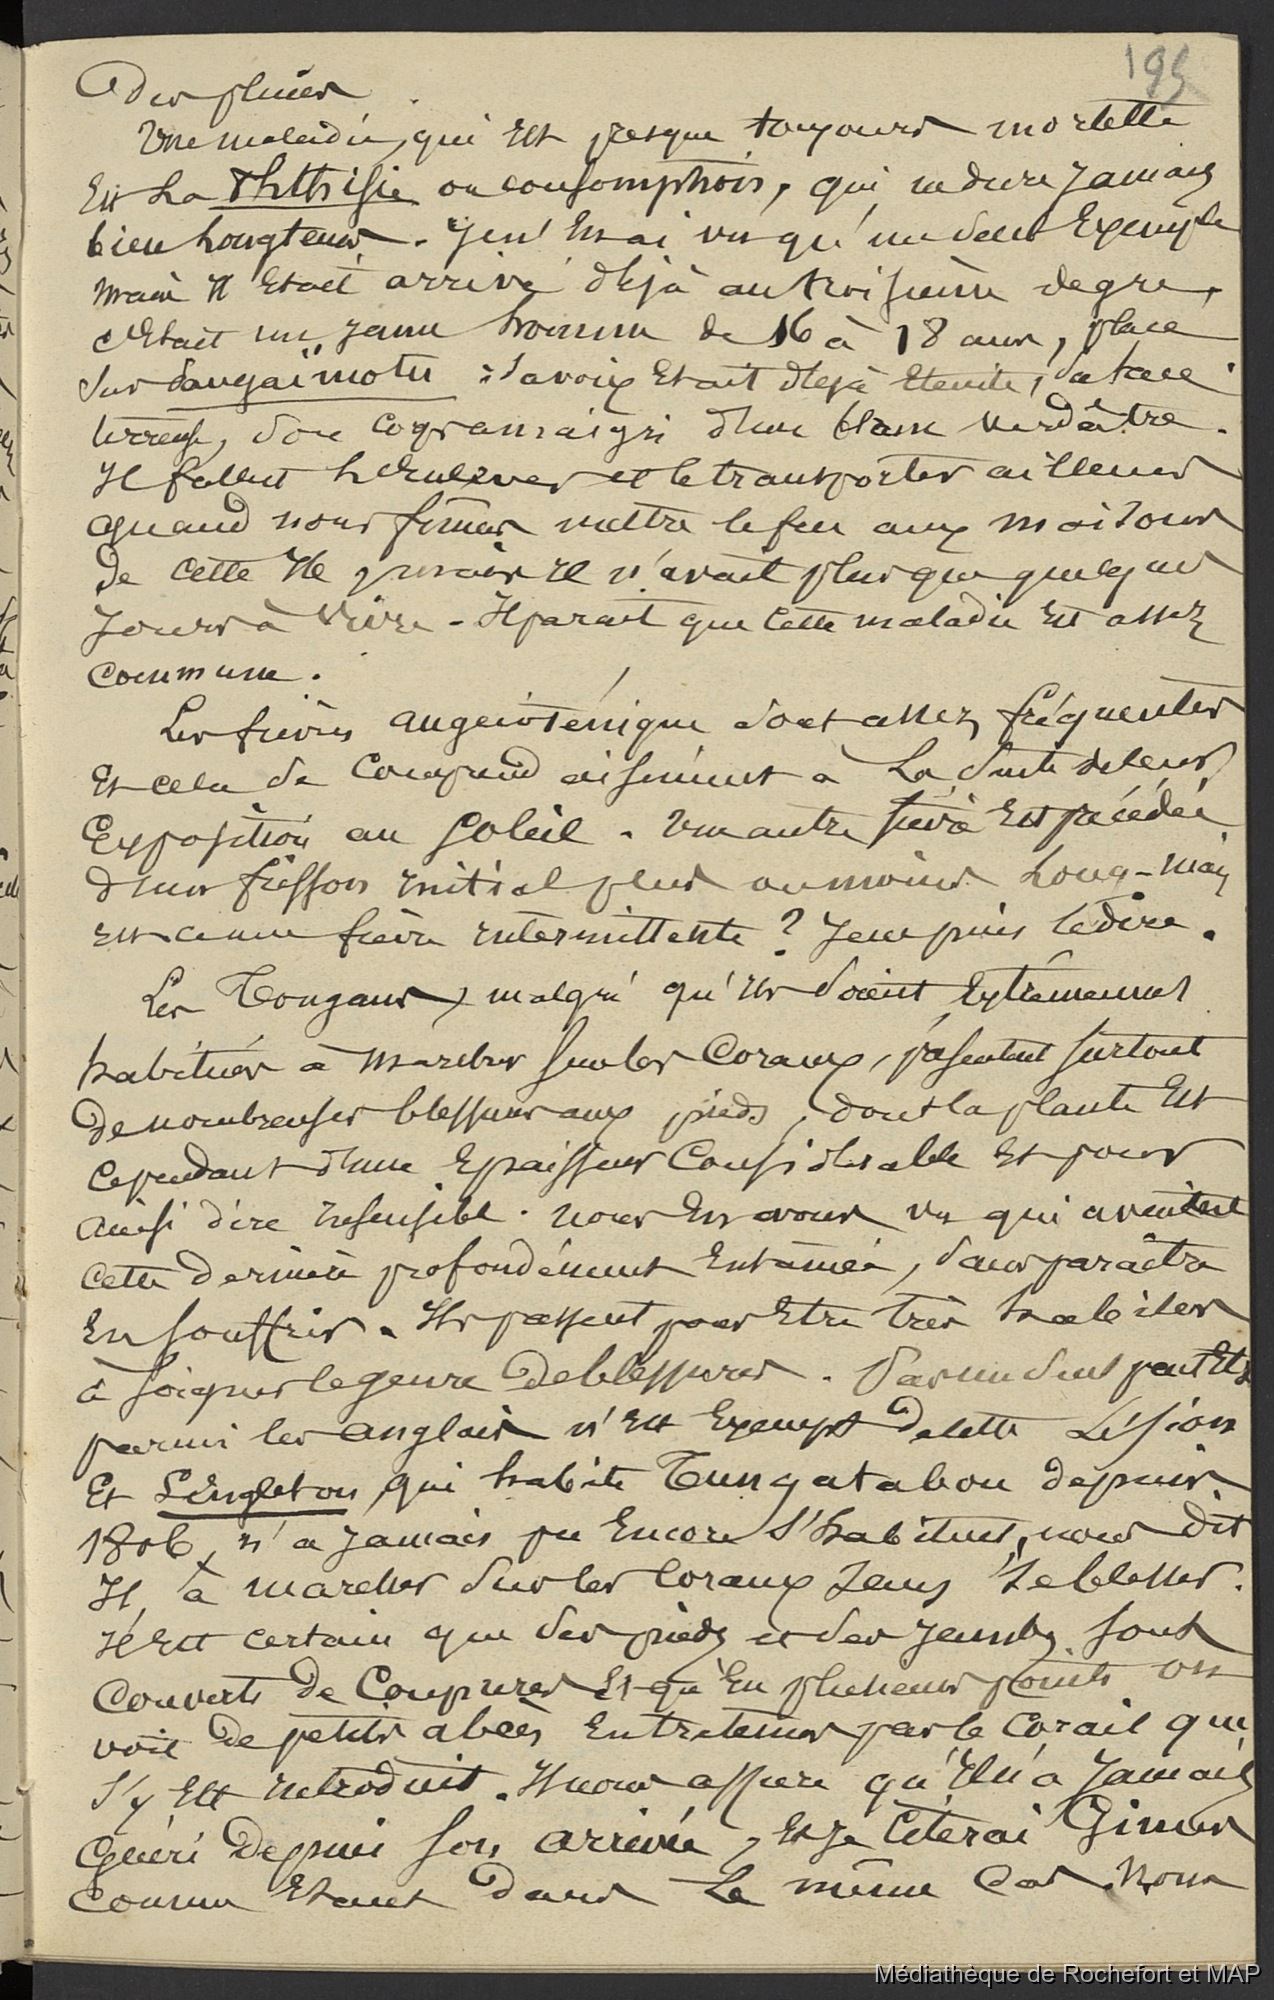 195
des pluies
Une maladie, qui est presque toujours mortelle
Est La Phthisie ou consomption, qui ne dure jamais
bien longtems. Je n'en ai vu qu'un seul Exemple
mais il etait arrivé déjà au troisième degré,
c'Etait un jeune homme de 16 à 18 ans, placé
sur Pangaïmotu : sa voix Etait déjà éteinte, sa face
terreuse, son corps amaigri d'un blanc verdâtre.
Il fallut l'enlever et le transporter ailleurs
quand nous fimes mettre le feu aux maisons
de cette Ile, mais il n'avait plus que quelques
Jours à vivre. Il parait que cette maladie est assez
commune.
Les fièvres angeioténique sont assez fréquentes
Et cela se comprend aisément à La suite de leur
Exposition au Soleil. Une autre fièvre Est précédée
d'un frisson initial plus ou moins Long. Mais
est-ce une fièvre intermittente ? Je ne puis le dire.
Les Tongans, malgré qu'ils soient Extrêmement
habitués à marcher sur les Coraux, présentent surtout
de nombreuses blessures aux pieds, dont la plante Est
cependant d'une Epaisseur Considérable Et pour
ainsi dire insensible. nous En avons vu qui avaient
cette dernière profondément Entamée, sans paraître
En souffrir. Ils passent pour Etre très habiles
à soigner le genre de blessures. Pas un seul peut Etre
parmi les anglais n'Est Exempt de cette Lésion
Et Singleton qui habite Tungatabou depuis
1806, n'a jamais pu Encore s'habituer, nous dit
Il, à marcher sur les Coraux sans se blesser.
Il Est certain que ses pieds et ses jambes sont
couverts de Coupures Et qu'En plusieurs points on
voit de petits abcès Entretenus par le Corail qui
s'y Est introduit. Il nous assure qu'Il n'a Jamais
Guéri depuis son arrivée, Et je citerai
comme Etant dans Le même Cas. Nous
Médiathèque de Rochefort et MAP